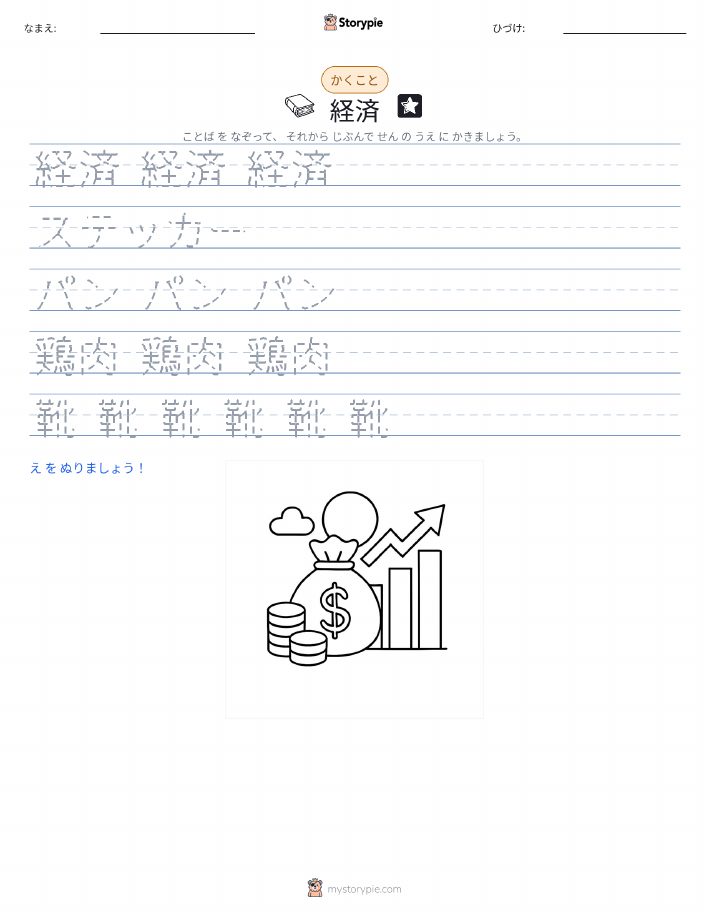 なまえ:
Storypie
ひづけ:
かくこと
経済
ことば を なぞって、 それから じぶんで せん の うえ に かきましょう。
経済 経済 経済
ステッカー
パン パン パン
鶏肉 鶏肉 鶏肉
靴 靴 靴 靴 靴 靴
え を ぬりましょう！
$
mystorypie.com